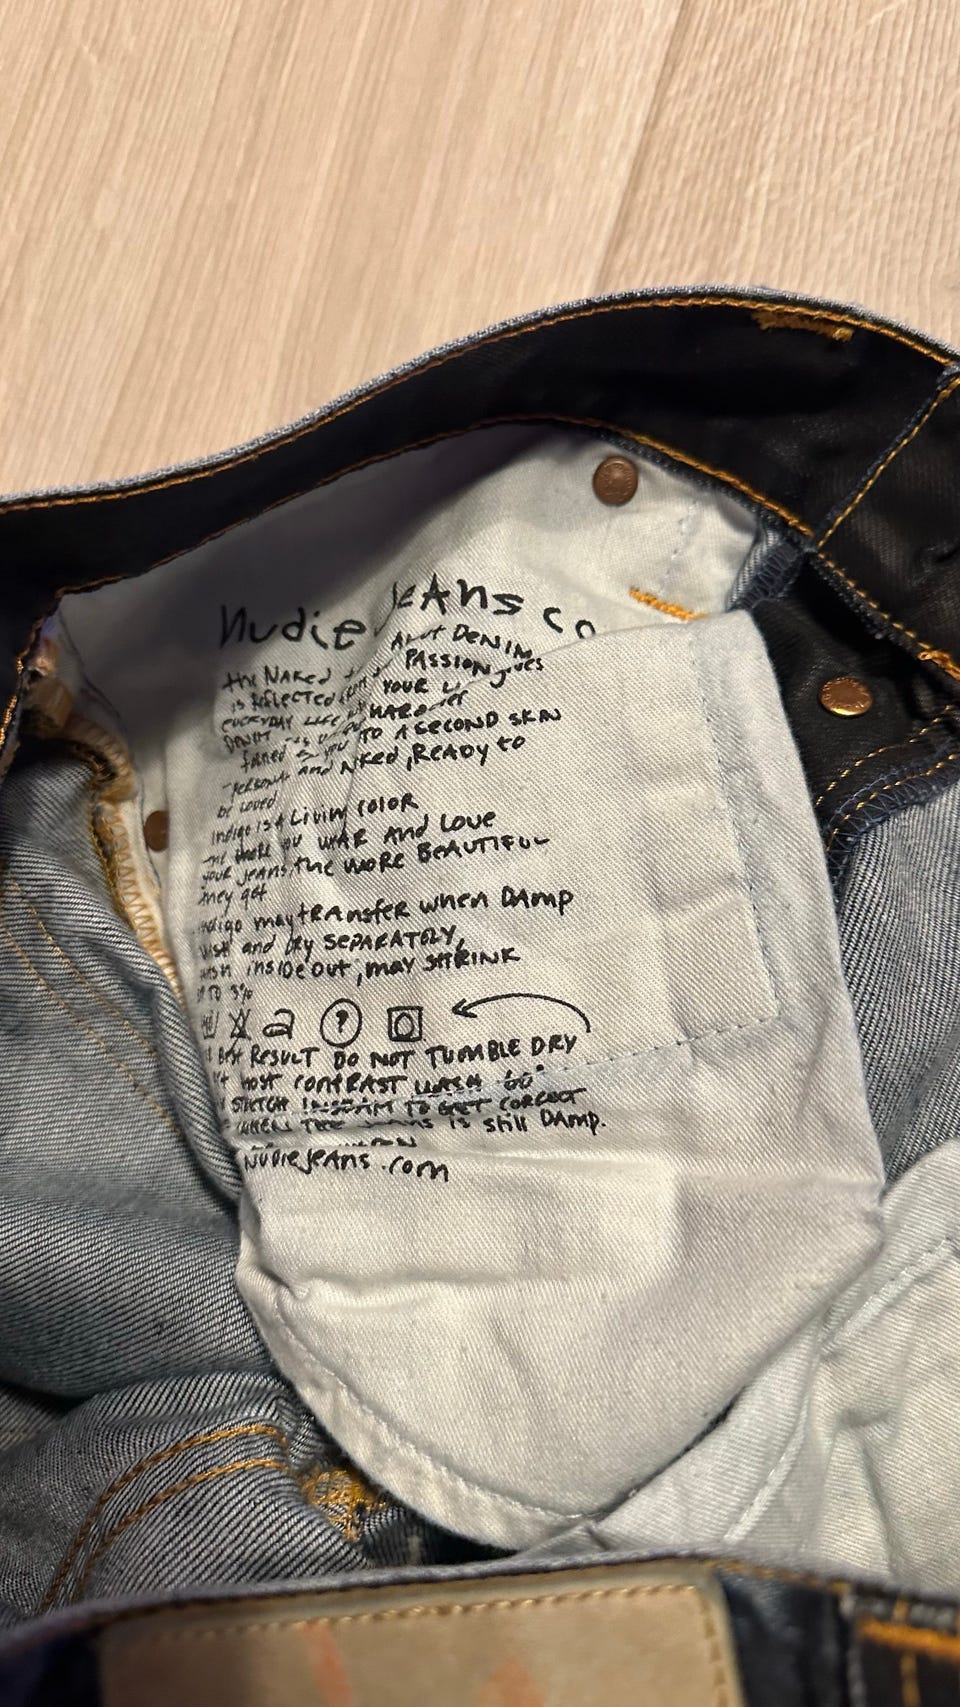 Nudie Jeans co
the NAKED ABOUT DENIM
is REFLECTED PASSION goes
EVERYDAY LIFE YOUR
HARDER
TO A SECOND SKIN
PERSONAL AND NAKED, READY to
be loved
Indigo is A Living COLOR
the more you WEAR And LOVE
YOUR JEANS, the MORE BEAUTIFUL
they get
indigo may tRAnsfER when DAmp
wash and dry SEPARATELY,
wash inside out, may SHRINK
UP TO 3%
?
BEST RESULT DO NOT TUMBLE DRY
MOST CONTRAST WASH 60°
STRETCH INSEAM TO GET CORRECT
WHEN THE JEANS is still DAMP.
NudieJeans.com